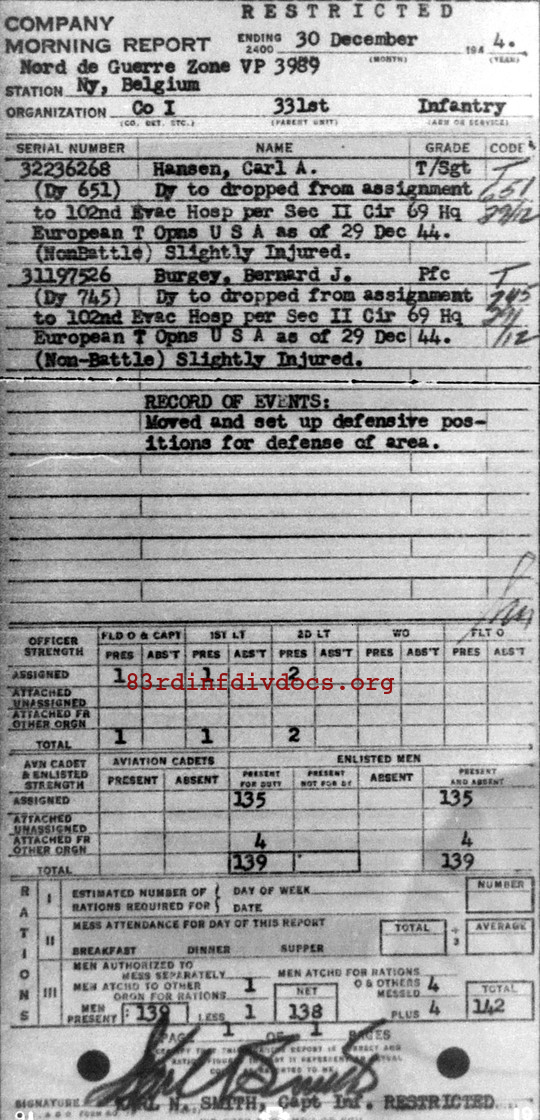 RESTRICTED
COMPANY
MORNING REPORT ENDING 2400 30 December 1944.
(MONTH) (YEAR)
Nord de Guerre Zone VP 3989
STATION Ny, Belgium
ORGANIZATION Co I 331st Infantry
(CO, DET, ETC.) (PARENT UNIT) (ARM OR SERVICE)
SERIAL NUMBER NAME GRADE CODE
32236268 Hansen, Carl A. T/Sgt T
(Dy 651) Dy to dropped from assignment 651
to 102nd Evac Hosp per Sec II Cir 69 Hq 29/12
European T Opns U S A as of 29 Dec 44.
(NonBattle) Slightly Injured.
31197526 Burgey, Bernard J. Pfc T
(Dy 745) Dy to dropped from assignment 745
to 102nd Evac Hosp per Sec II Cir 69 Hq
European T Opns U S A as of 29 Dec 44. /12
(Non-Battle) Slightly Injured.
RECORD OF EVENTS:
Moved and set up defensive pos-
itions for defense of area.
OFFICER STRENGTH FLD O & CAPT 1ST LT 2D LT WO FLT O
PRES ABS'T PRES ABS'T PRES ABS'T PRES ABS'T PRES ABS'T
ASSIGNED 1 1 2
83rdinfdivdocs.org
ATTACHED UNASSIGNED
ATTACHED FR OTHER ORGN
TOTAL 1 1 2
AVN CADET & ENLISTED STRENGTH AVIATION CADETS ENLISTED MEN
PRESENT ABSENT PRESENT FOR DUTY PRESENT NOT FOR DY ABSENT PRESENT AND ABSENT
ASSIGNED 135 135
ATTACHED UNASSIGNED
ATTACHED FR OTHER ORGN 4 4
TOTAL 139 139
RATIONS
I ESTIMATED NUMBER OF RATIONS REQUIRED FOR DAY OF WEEK DATE NUMBER
II MESS ATTENDANCE FOR DAY OF THIS REPORT TOTAL ÷ 3 AVERAGE
BREAKFAST DINNER SUPPER
III MEN AUTHORIZED TO MESS SEPARATELY 1 MEN ATCHD FOR RATIONS
MEN ATCHD TO OTHER ORGN FOR RATIONS O & OTHERS MESSED 4
NET TOTAL
MEN PRESENT 139 LESS 1 138 PLUS 4 142
PAGE 1 OF 1 PAGES
SIGNATURE KARL N. SMITH, Capt Inf. RESTRICTED